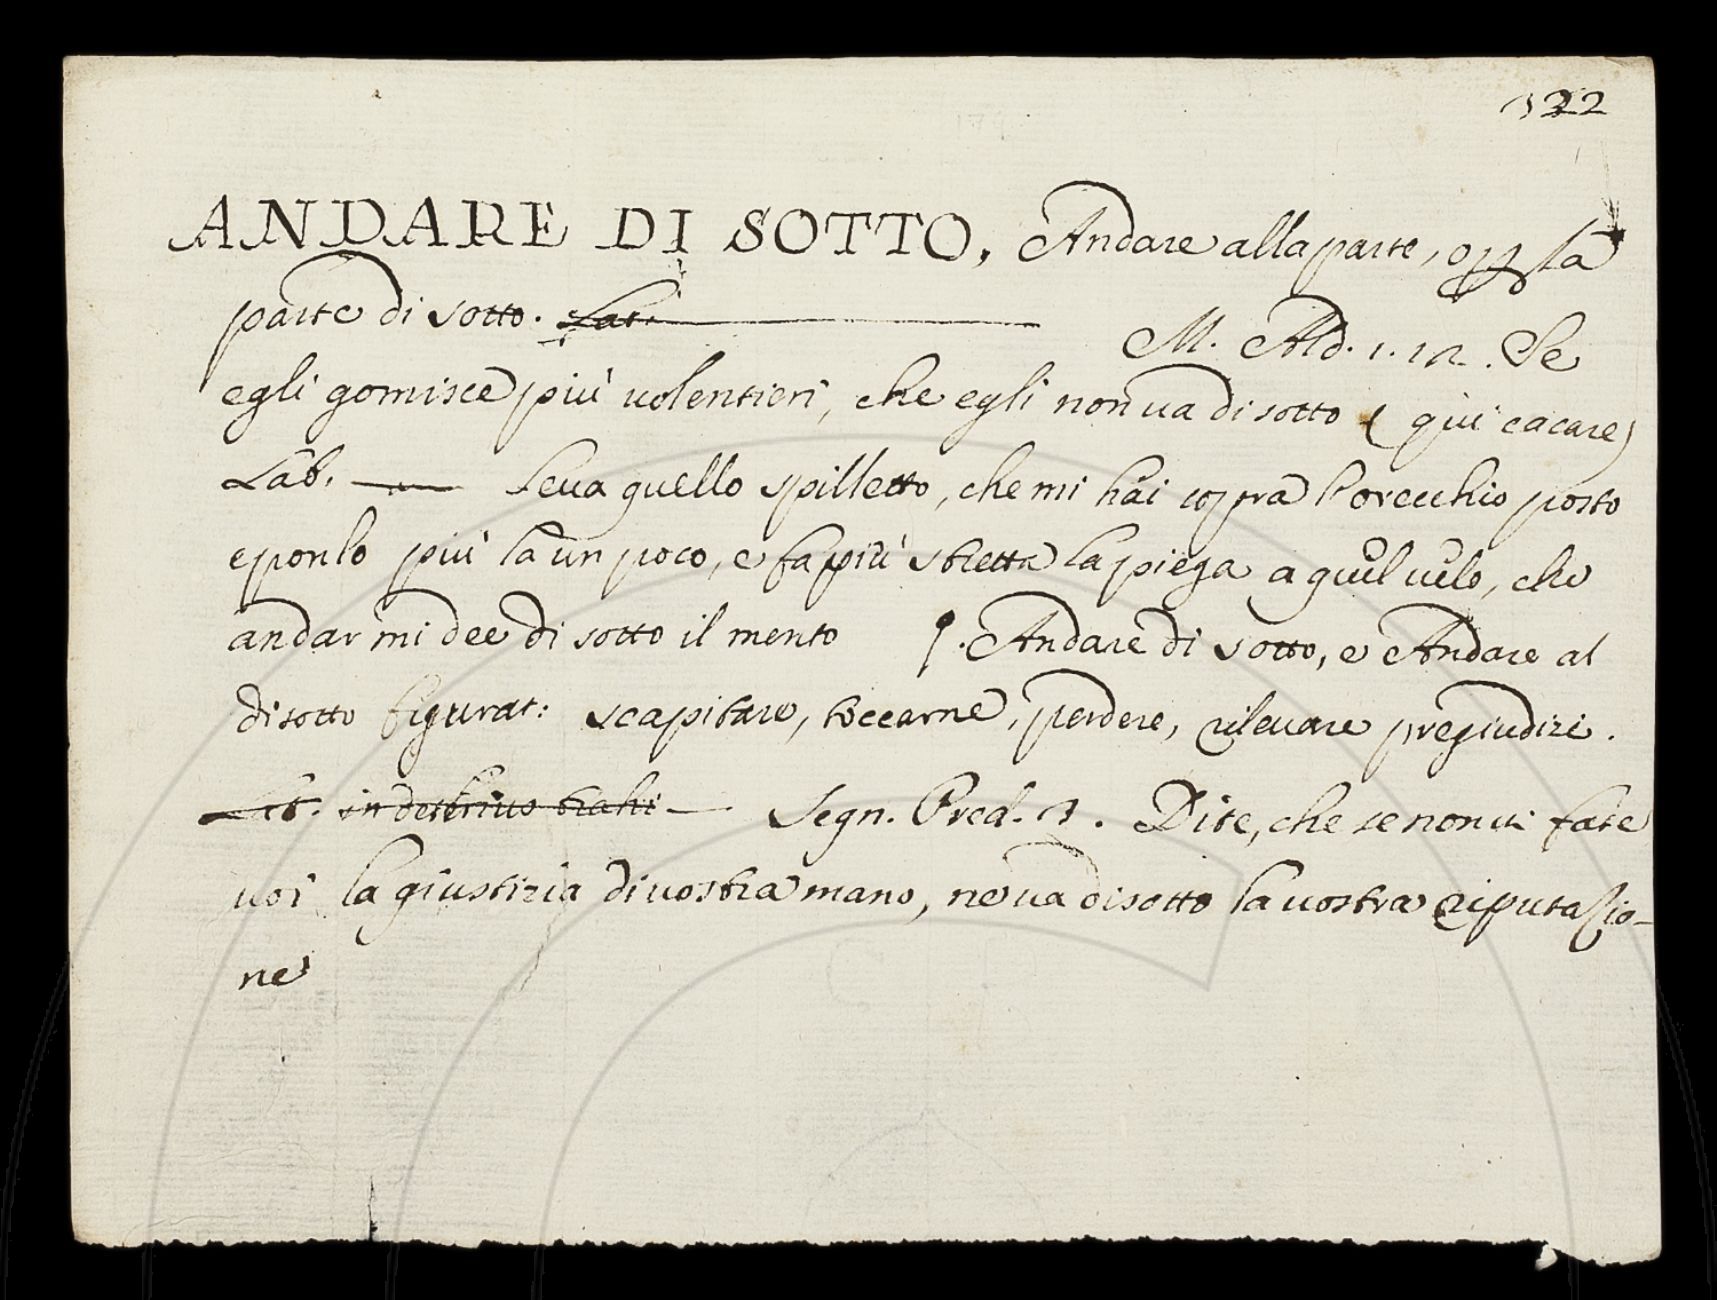 322
ANDARE DI SOTTO, Andare alla parte, o p la
parte di sotto. Lat.
M. Ald. 1. 12. Se
egli gomisce più uolentieri, che egli non ua di sotto (qui cacare)
Lab. Leua quello spilletto, che mi hai sopra l'orecchio posto
e ponlo più là un poco, e fa più stretta la piega a quel uelo, che
andar mi dee di sotto il mento §. Andare di sotto, e Andare al
disotto figurat: scapitare, toccarne, perdere, rileuare pregiudizi.
Lat. in deterius trahi Segn. Pred. 3. Dite, che se non ui fate
uoi la giustizia di uostra mano, ne ua disotto la uostra riputazio-
ne